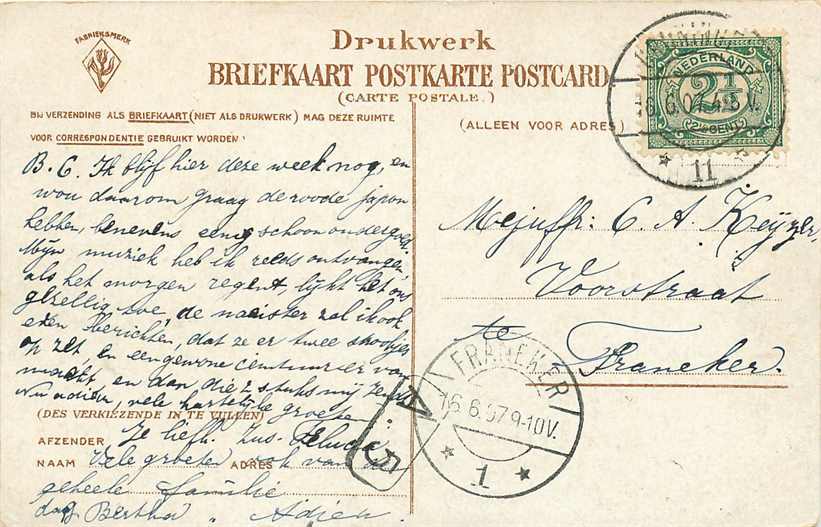 FABRIEKSMERK
Drukwerk
BRIEFKAART POSTKARTE POSTCARD
(CARTE POSTALE.)
BIJ VERZENDING ALS BRIEFKAART (NIET ALS DRUKWERK) MAG DEZE RUIMTE
VOOR CORRESPONDENTIE GEBRUIKT WORDEN
(ALLEEN VOOR ADRES)
NEDERLAND
2½
(2½ CENT)
16.6.07.4-8 V.
11
B. C. Ik blijf hier deze week nog, en
wou daarom graag de roode japon
hebben, benevens eenig schoon ondergoed.
Mijn muziek heb ik reeds ontvangen,
als het morgen regent, lijkt het ons
gezellig toe, de naaister zal ik ook
even berichten, dat ze er twee strookjes
op zet, en een gewone ceintuur er van
maakt, en dan die 2 stuks mij zendt
Nu adieu, vele hartelijke groeten
(DES VERKIEZENDE IN TE VULLEN)
AFZENDER Je liefh. Zus.
NAAM Vele groeten ADRES ook van de
geheele familie
dag Bertha, Adieu.
Mejuffr: C. A. Keyzer,
Voorstraat
te
Franeker.
FRANEKER
16.6.07.9-10V.
1
A
5